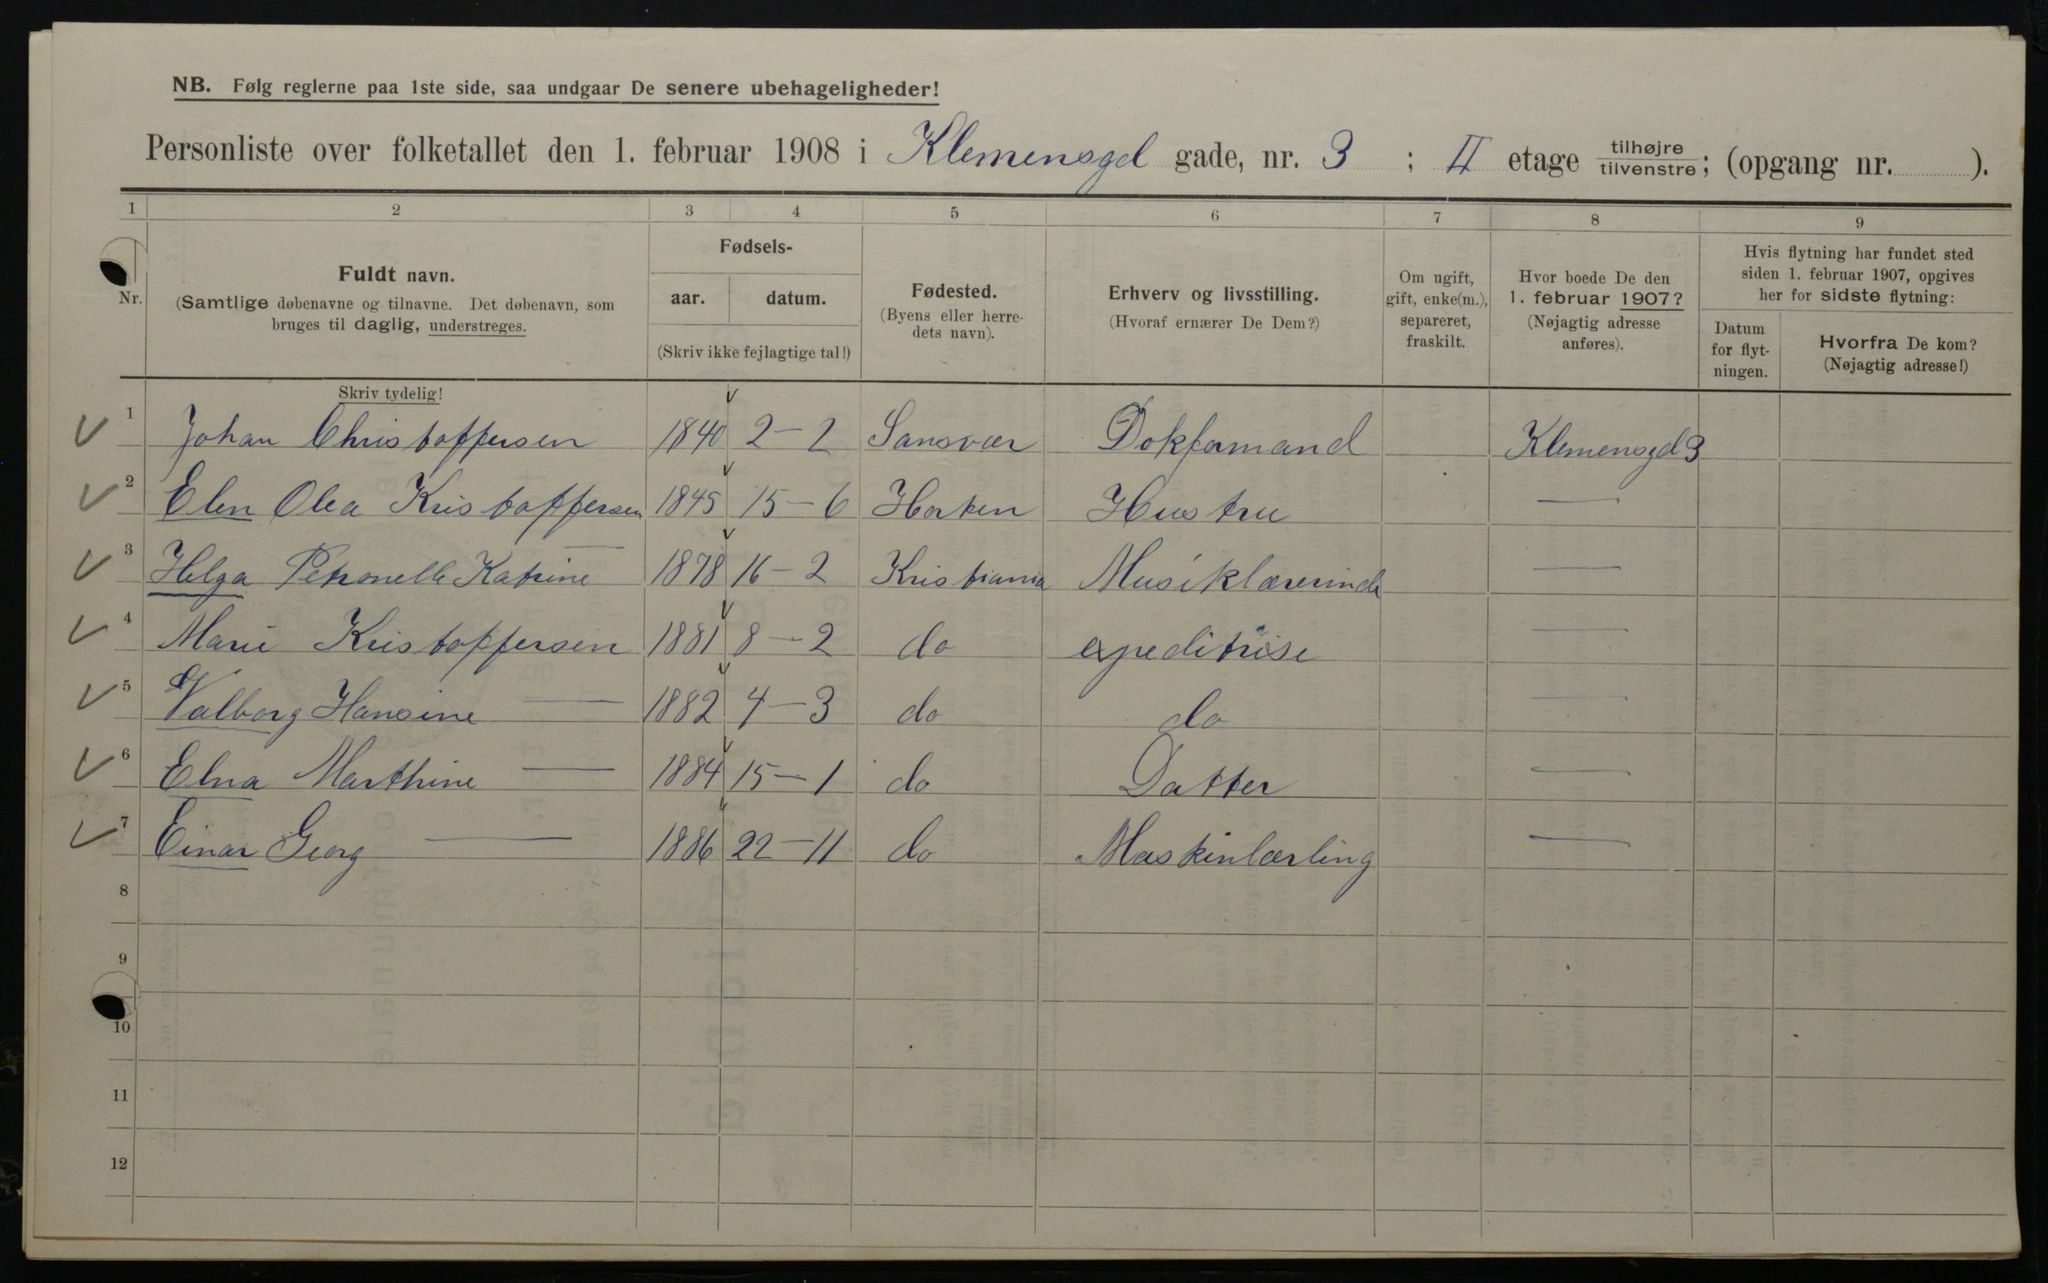 NB. Følg reglerne paa 1ste side, saa undgaar De senere ubehageligheder!
Personliste over folketallet den 1. februar 1908 i Klemensgd gade, nr. 3 ; II etage tilhøjre tilvenstre; (opgang nr. ).
1 2 3 4 5 6 7 8 9
Nr.
Fuldt navn.
(Samtlige døbenavne og tilnavne. Det døbenavn, som
bruges til daglig, understreges.
Skriv tydelig!
Fødsels-
aar. datum.
(Skriv ikke fejlagtige tal!)
Fødested.
(Byens eller herre-
dets navn).
Erhverv og livsstilling.
(Hvoraf ernærer De Dem?)
Om ugift,
gift, enke(m.),
separeret,
fraskilt.
Hvor boede De den
1. februar 1907?
(Nøjagtig adresse
anføres).
Hvis flytning har fundet sted
siden 1. februar 1907, opgives
her for sidste flytning:
Datum
for flyt-
ningen.
Hvorfra De kom?
(Nøjagtig adresse!)
1 Johan Christoffersen 1840 2-2 Sansvær Dokformand Klemensgd 3
2 Elen Olea Kristoffersen 1845 15-6 Horten Hustru —
3 Helga Petronelle Katrine — 1878 16-2 Kristiania Musiklærerinde —
4 Marie Kristoffersen 1881 8-2 do expeditrise —
5 Valborg Hansine — 1882 4-3 do do —
6 Elna Marthine — 1884 15-1 do Datter —
7 Einar Georg — 1886 22-11 do Maskinlærling —
8
9
10
11
12